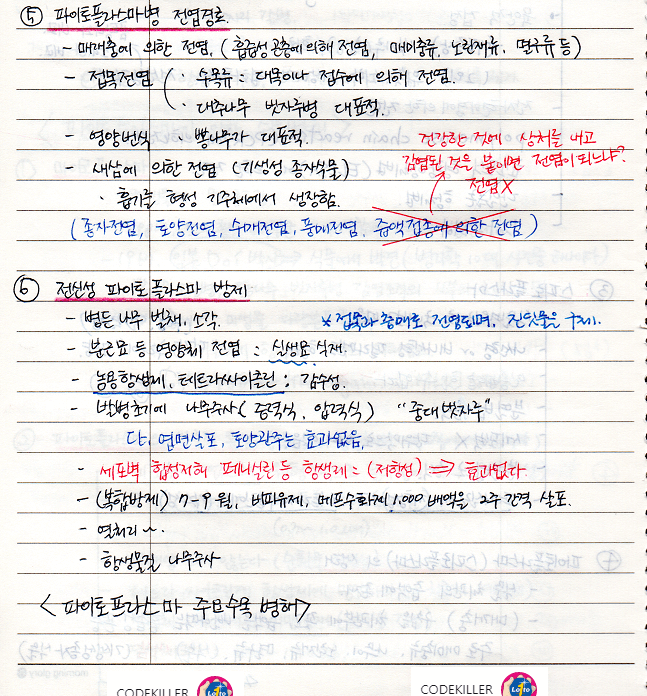 ⑤ 파이토플라스마병 전염경로
- 매개충에 의한 전염, (흡즙성 곤충에 의해 전염, 매미충류, 노린재류, 멸구류 등)
- 접목전염 ( · 수목류 : 대목이나 접수에 의해 전염.
· 대추나무 빗자루병 대표적.
- 영양번식 · 뽕나무가 대표적.
건강한 것에 상처를 내고
- 새삼에 의한 전염 (기생성 종자식물)
감염된 것을 붙이면 전염이 되느냐?
전염X
· 흡기를 형성 기주체에서 생장함.
(종자전염, 토양전염, 수매전염, 풍매전염, 즙액접종에 의한 전염)
⑥ 전신성 파이토플라스마 방제
- 병든 나무 벌채, 소각.
* 접목과 충매로 전염되며, 진딧물을 구제.
- 분근묘 등 영양체 전염 : 실생묘 식재.
- 농용항생제, 테트라싸이클린 : 감수성.
- 발병초기에 나무주사 (중력식, 압력식) "중대빗자루"
다. 엽면살포, 토양관주는 효과없음.
- 세포벽 합성저해 페니실린 등 항생제 = (저항성) ⇒ 효과없다.
- (복합방제) 7-9월, 비피유제, 메프수화제 1,000 배액을 2주 간격 살포.
- 열처리~.
- 항생물질 나무주사
<파이토프라스마 주요수목 병해>
CODEKILLER
Lotto
CODEKILLER
Lotto